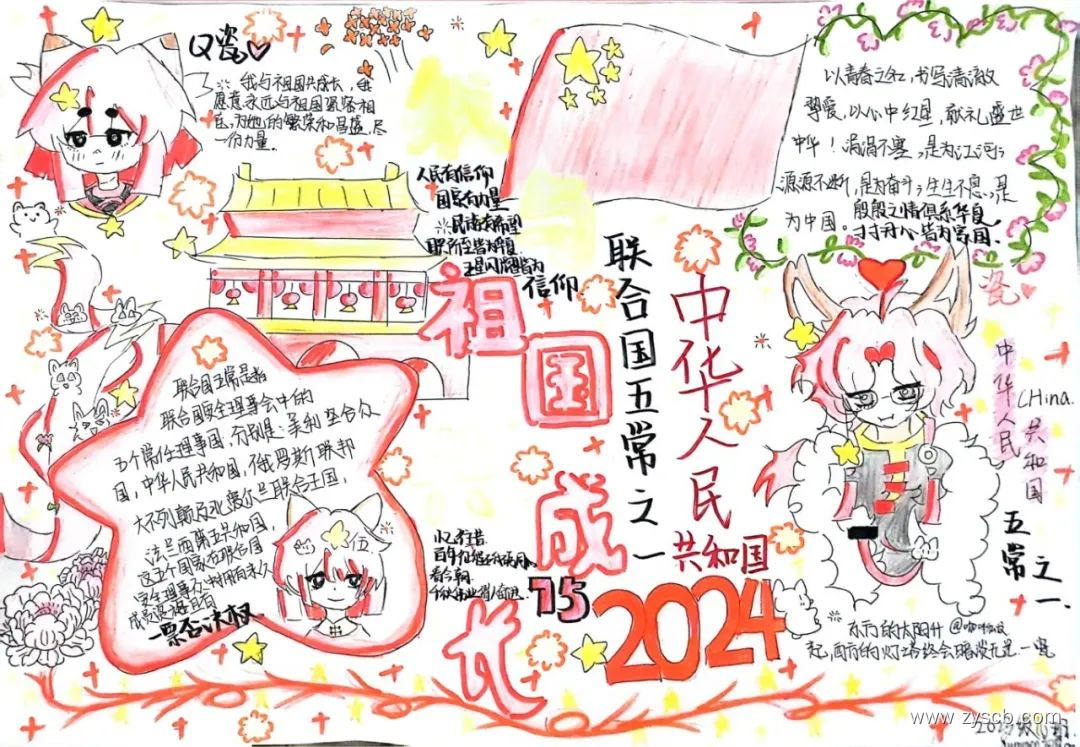 Q瓷
我与祖国共成长，我
愿意永远与祖国紧紧相
为她的繁荣和昌盛，尽
一份力量．
人民有信仰
国家有力量
民族有希望
眼所至皆为华夏
信仰
以青春之红，书写清澈
挚爱，以心中红星，献礼盛世
中华！涓涓不塞，是为江河；
源源不断，是为奋斗；生生不息，是
为中国。
殷殷之情俱系华夏
寸寸丹心皆为家国．
瓷
祖国成长
联合国五常之一
中华人民
共和国
中华人民共和国
CHina.
五常之一．
联合国五常是指
联合国安全理事会中的
五个常任理事国，分别是：美利坚合众
国，中华人民共和国，俄罗斯联邦
大不列颠及北爱尔兰联合王国，
法兰西第五共和国，
这五个国家在联合国
安全理事会中拥有永久
成员
一票否决权
伍
忆往昔
看今朝
75
2024
东方的太阳升
起，西方的灯塔终会暗淡无光．一瓷
www.zyscb.com